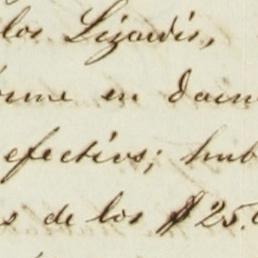 los Lizardis,
en
efectivo; hub
s de los $25.